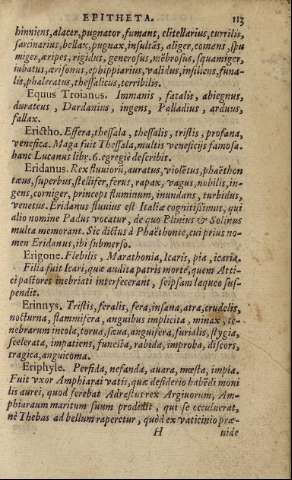 EPITHETA. 113
hinniens, alacer, pugnator, fumans, clitellarius, turrilis,
sarcinarius, bellax, pugnax, insultãs, aliger, comens, spu
miger, aripes, rigidus, generosus, mẽbrosus, squamiger,
iubatus, ærisonus, ephippiarius, validus, insiliens, funa-
lis, phaleratus, thessalicus, terribilis.
Equus Troianus. Immanis, fatalis, abiegnus,
durateus, Dardanius, ingens, Palladius, arduus,
fallax.
Erictho. Effera, thessala, thessalis, tristis, profana,
venefica. Maga fuit Thessala, multis veneficijs famosa.
hanc Lucanus lib. 6. egregiè describit.
Eridanus. Rex fluuiorũ, auratus, violẽtus, phaëthon
teus, superbus, stellifer, ferus, rapax, vagus, nobilis, in-
gens, corniger, princeps fluminum, inundans, turbidus,
venetus. Eridanus fluuius est Italiæ cognitissimus, qui
alio nomine Padus vocatur, de quo Plinius & Solinus
multa memorant. Sic dictus à Phaëthonte, cui prius no-
men Eridanus, ibi submerso.
Erigone. Flebilis, Marathonia, Icaris, pia, icaria.
Filia fuit Icari, quæ audita patris morte, quem Atti-
ci pastores inebriati interfecerant, seipsam laqueo sus-
pendit.
Erinnys. Tristis, feralis, fera, insana, atra, crudelis,
nocturna, flammifera, anguibus implicita, minax, te-
nebrarum incola, torua, sæua, anguifera, furialis, stygia,
scelerata, impatiens, funesta, rabida, improba, discors,
tragica, anguicoma.
Eriphyle. Perfida, nefanda, auara, mœsta, impia.
Fuit vxor Amphiarai vatis, quæ desiderio habẽdi moni
lis aurei, quod ferebat Adrastus rex Argiuorum, Am-
phiaraum maritum suum prodidit, qui se occuluerat,
nè Thebas ad bellum raperetur, quòd ex vaticinio præ-
H uide